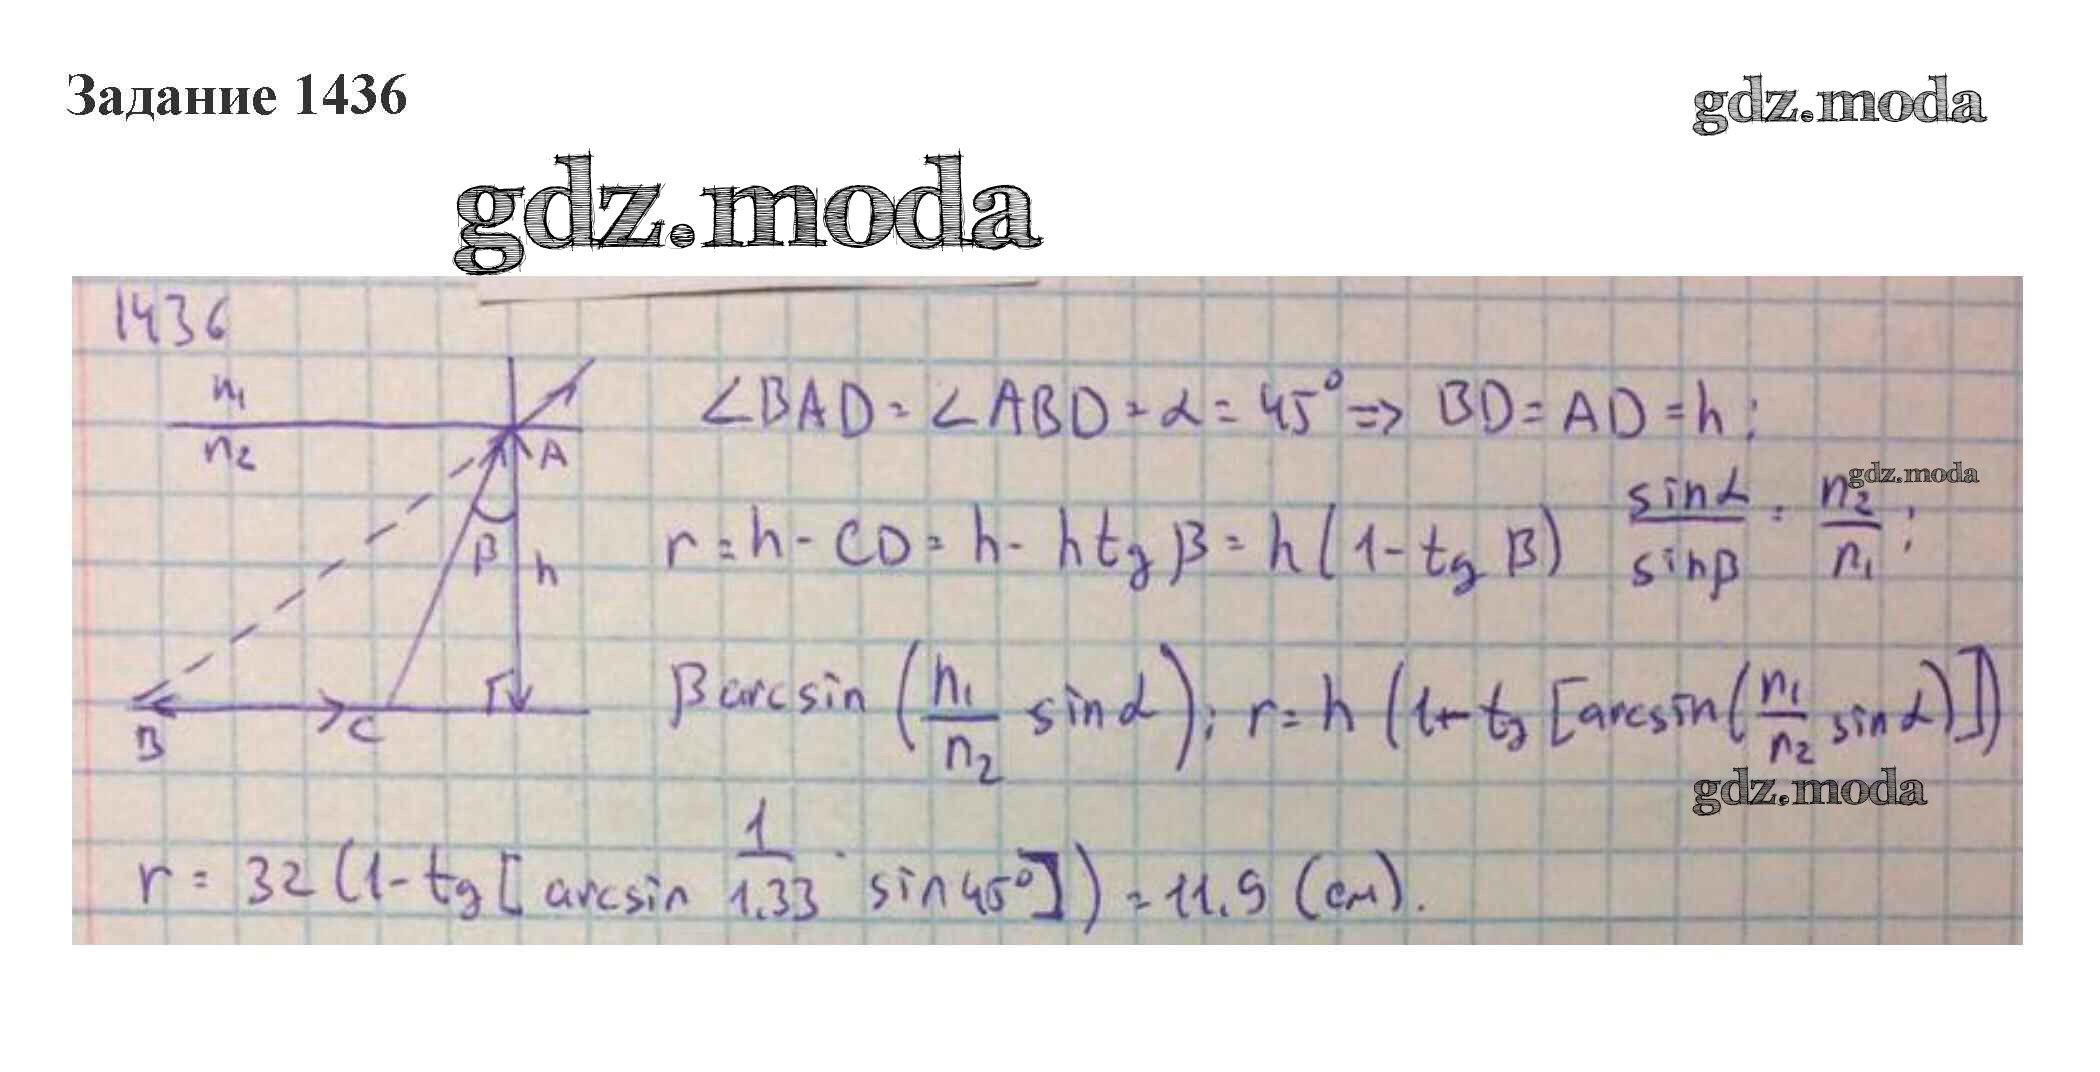 Задание 1436
gdz.moda
gdz.moda
1436
n₁
n₂
A
β
h
B
C
∠BAD = ∠ABD = α = 45° => BD = AD = h;
r = h - CD = h - h tg β = h(1 - tg β) sinα/sinβ = n₂/n₁;
gdz.moda
β arcsin (n₁/n₂ sinα); r = h (1 - tg [arcsin(n₁/n₂ sinα)])
gdz.moda
r = 32 (1 - tg [arcsin 1/1.33 · sin45°]) = 11.9 (см).